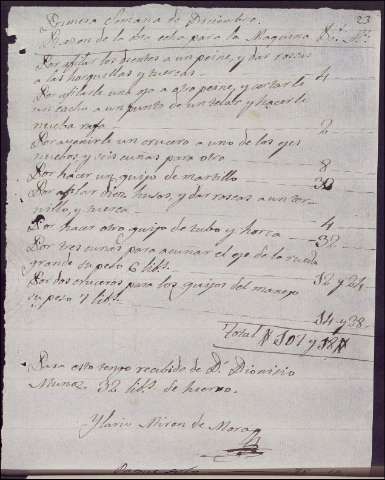 23
Primera Semana de Diciembre.
Razon de la obra echa para la Maquina Rs. Ms.
Por afilar los dientes a un peine, y dar roscas
a las horquillas y tuercas 4
Por afilarle una oja a otro peine, y cortarle
un cacho a un punto de un telar y hacerle
nueba rosca 2
Por ayunirle un crucero a uno de los ejes
nuebos y seis cuñas para otro 8
Por hacer un quijo de martillo 32
Por afilar diez husos, y dar roscas a un tor-
nillo, y tuerca 4
Por hacer otro quijo de tubo y horca 32
Por tres cuñas para acuñar el eje de la rueda
grande su peso 6 libs. 12 y 24
Por dos cruceros para los quijos del manejo
su peso 7 libs. 14 y 28
Total 107 y 18
Para esto tengo recibido de Dn. Dionicio
Muñoz 32 libs. de hierro.
Ylario Miron de Mora